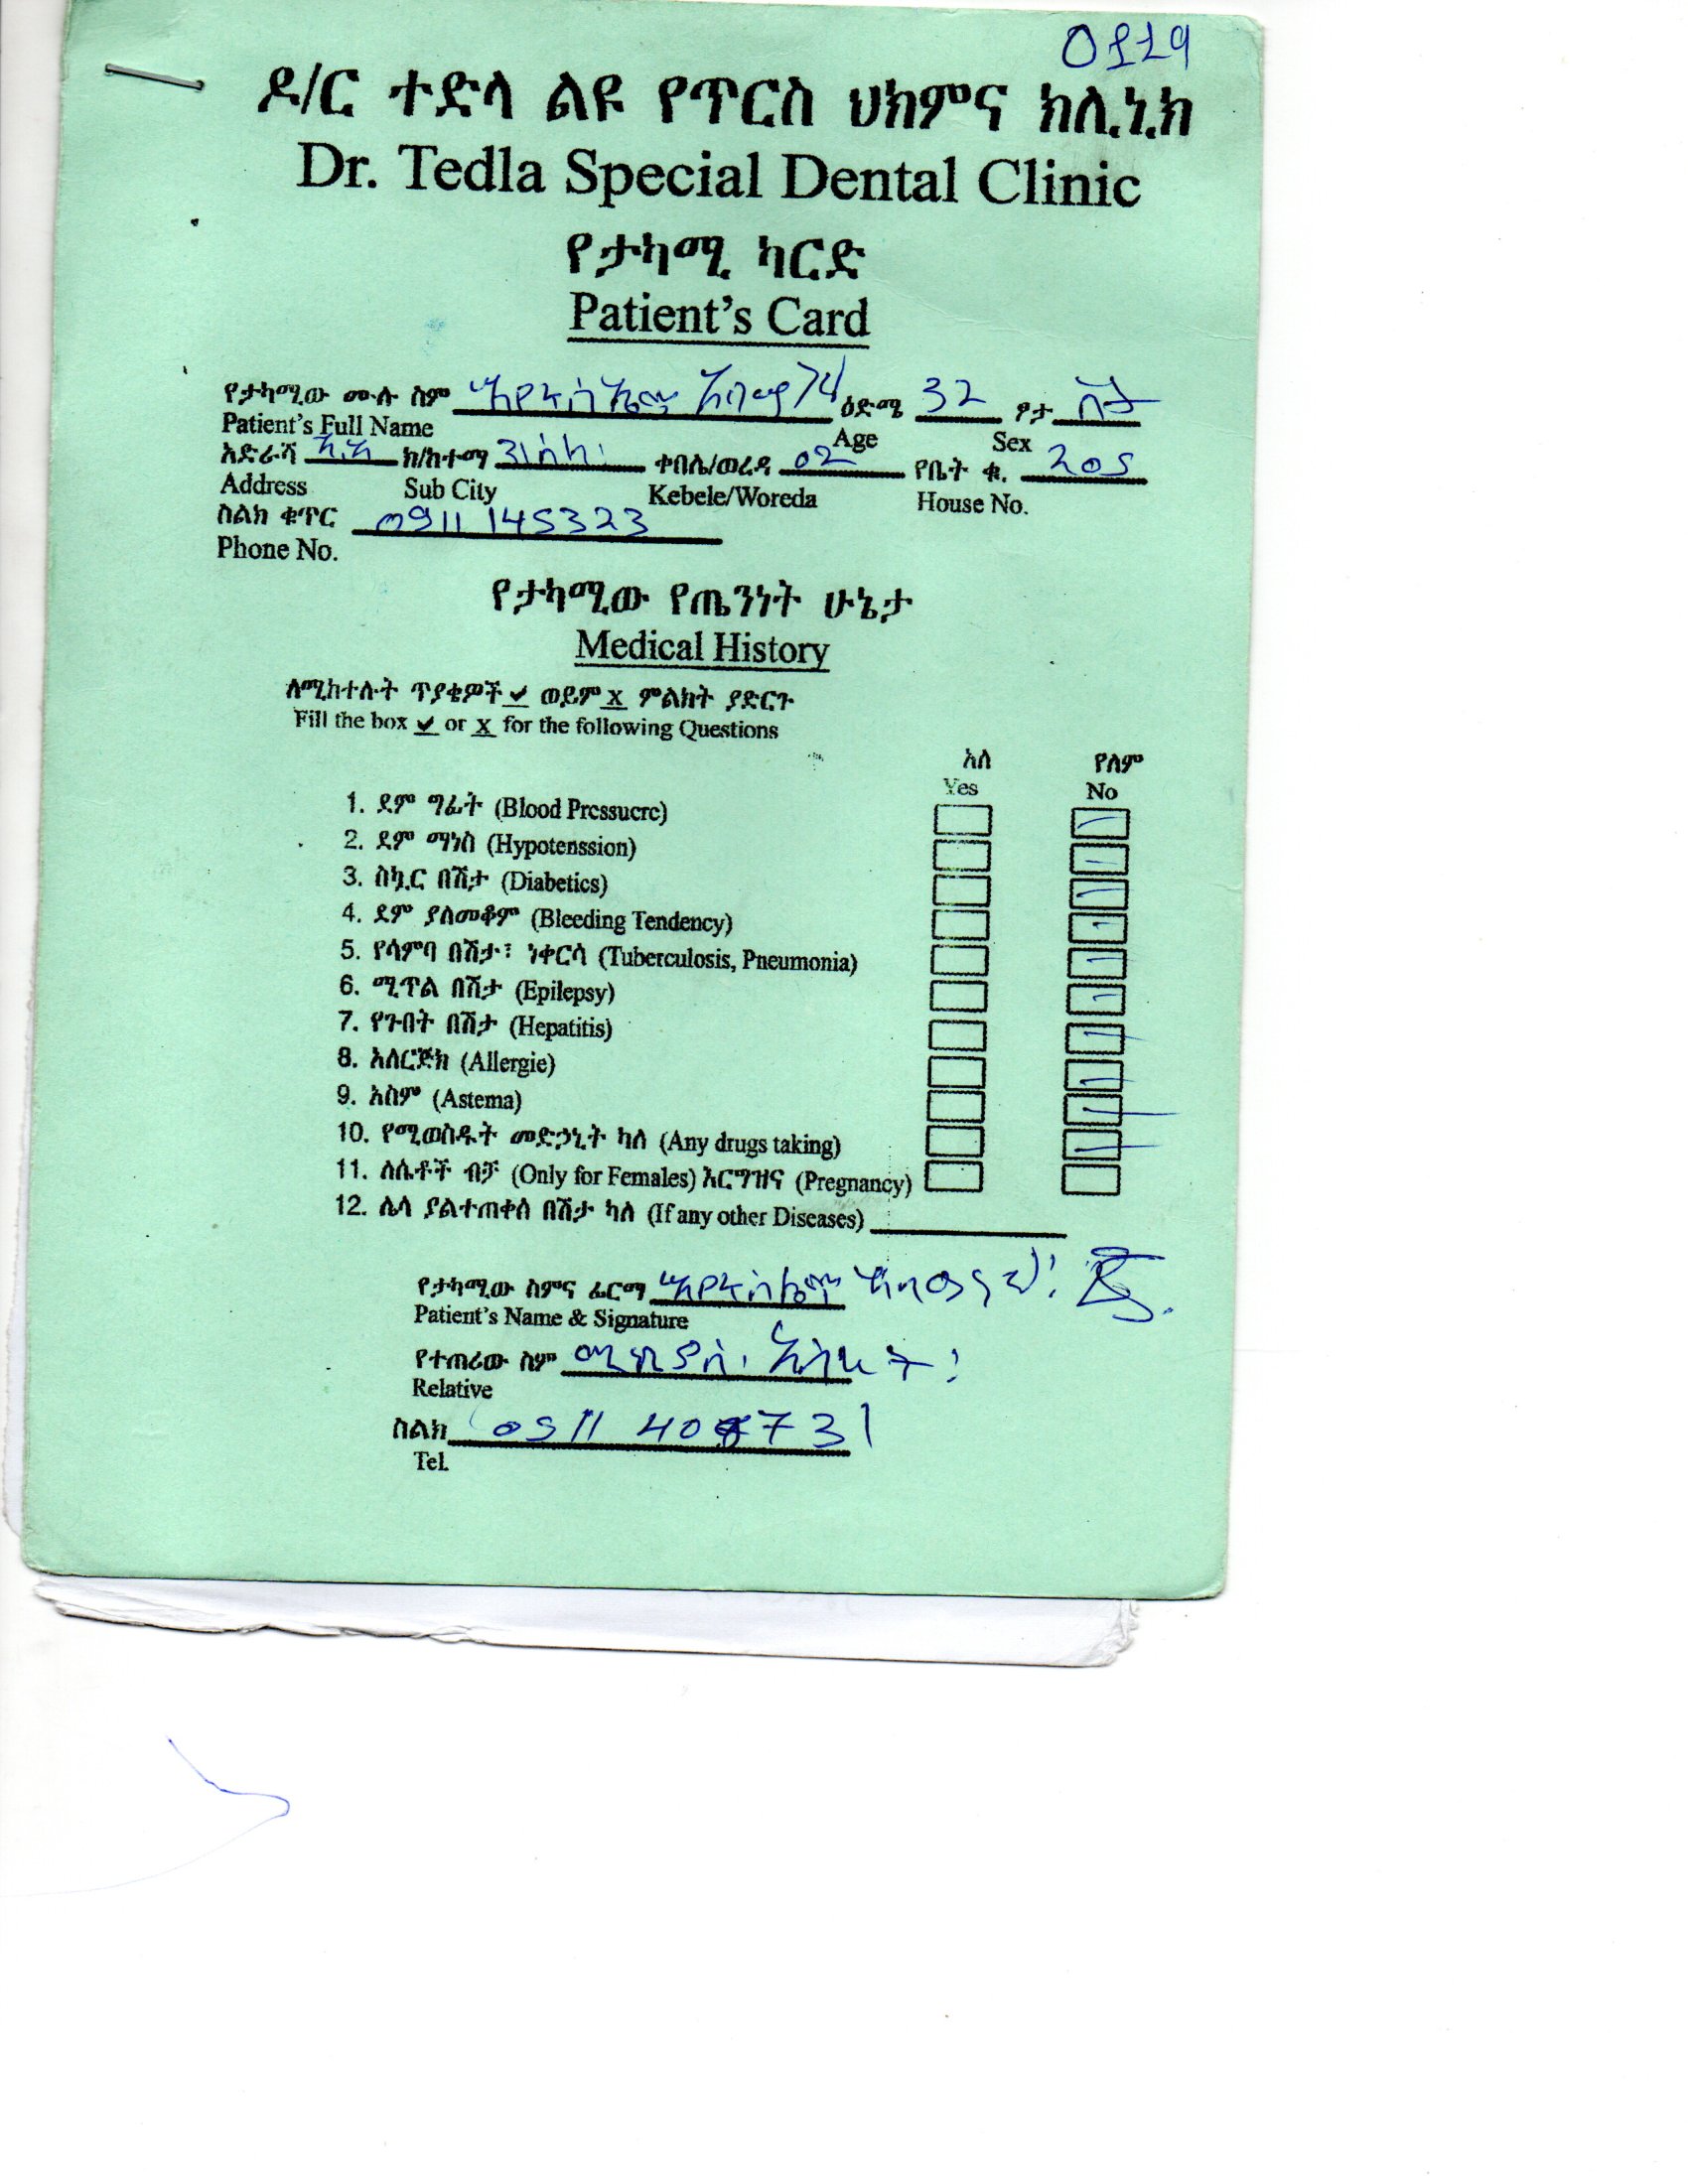 0119
ዶ/ር ተድላ ልዩ የጥርስ ህክምና ክሊኒክ
Dr. Tedla Special Dental Clinic
የታካሚ ካርድ
Patient's Card
የታካሚው ሙሉ ስም ዕድሜ 32 ፆታ ሴት
Patient's Full Name Age Sex
አድራሻ አ.አ ክ/ከተማ ቀበሌ/ወረዳ 02 የቤት ቁ. 205
Address Sub City Kebele/Woreda House No.
ስልክ ቁጥር 0911 145323
Phone No.
የታካሚው የጤንነት ሁኔታ
Medical History
ለሚከተሉት ጥያቄዎች ✔ ወይም X ምልክት ያድርጉ
Fill the box ✔ or X for the following Questions
አለ የለም
Yes No
1. ደም ግፊት (Blood Pressucre)
2. ደም ማነስ (Hypotenssion)
3. ስኳር በሽታ (Diabetics)
4. ደም ያለመቆም (Bleeding Tendency)
5. የሳምባ በሽታ፣ ነቀርሳ (Tuberculosis, Pneumonia)
6. ሚጥል በሽታ (Epilepsy)
7. የጉበት በሽታ (Hepatitis)
8. አለርጅክ (Allergie)
9. አስም (Astema)
10. የሚወስዱት መድኃኒት ካለ (Any drugs taking)
11. ለሴቶች ብቻ (Only for Females) እርግዝና (Pregnancy)
12. ሌላ ያልተጠቀሰ በሽታ ካለ (If any other Diseases)
የታካሚው ስምና ፊርማ
Patient's Name & Signature
የተጠሪው ስም
Relative
ስልክ 0911 408731
Tel.